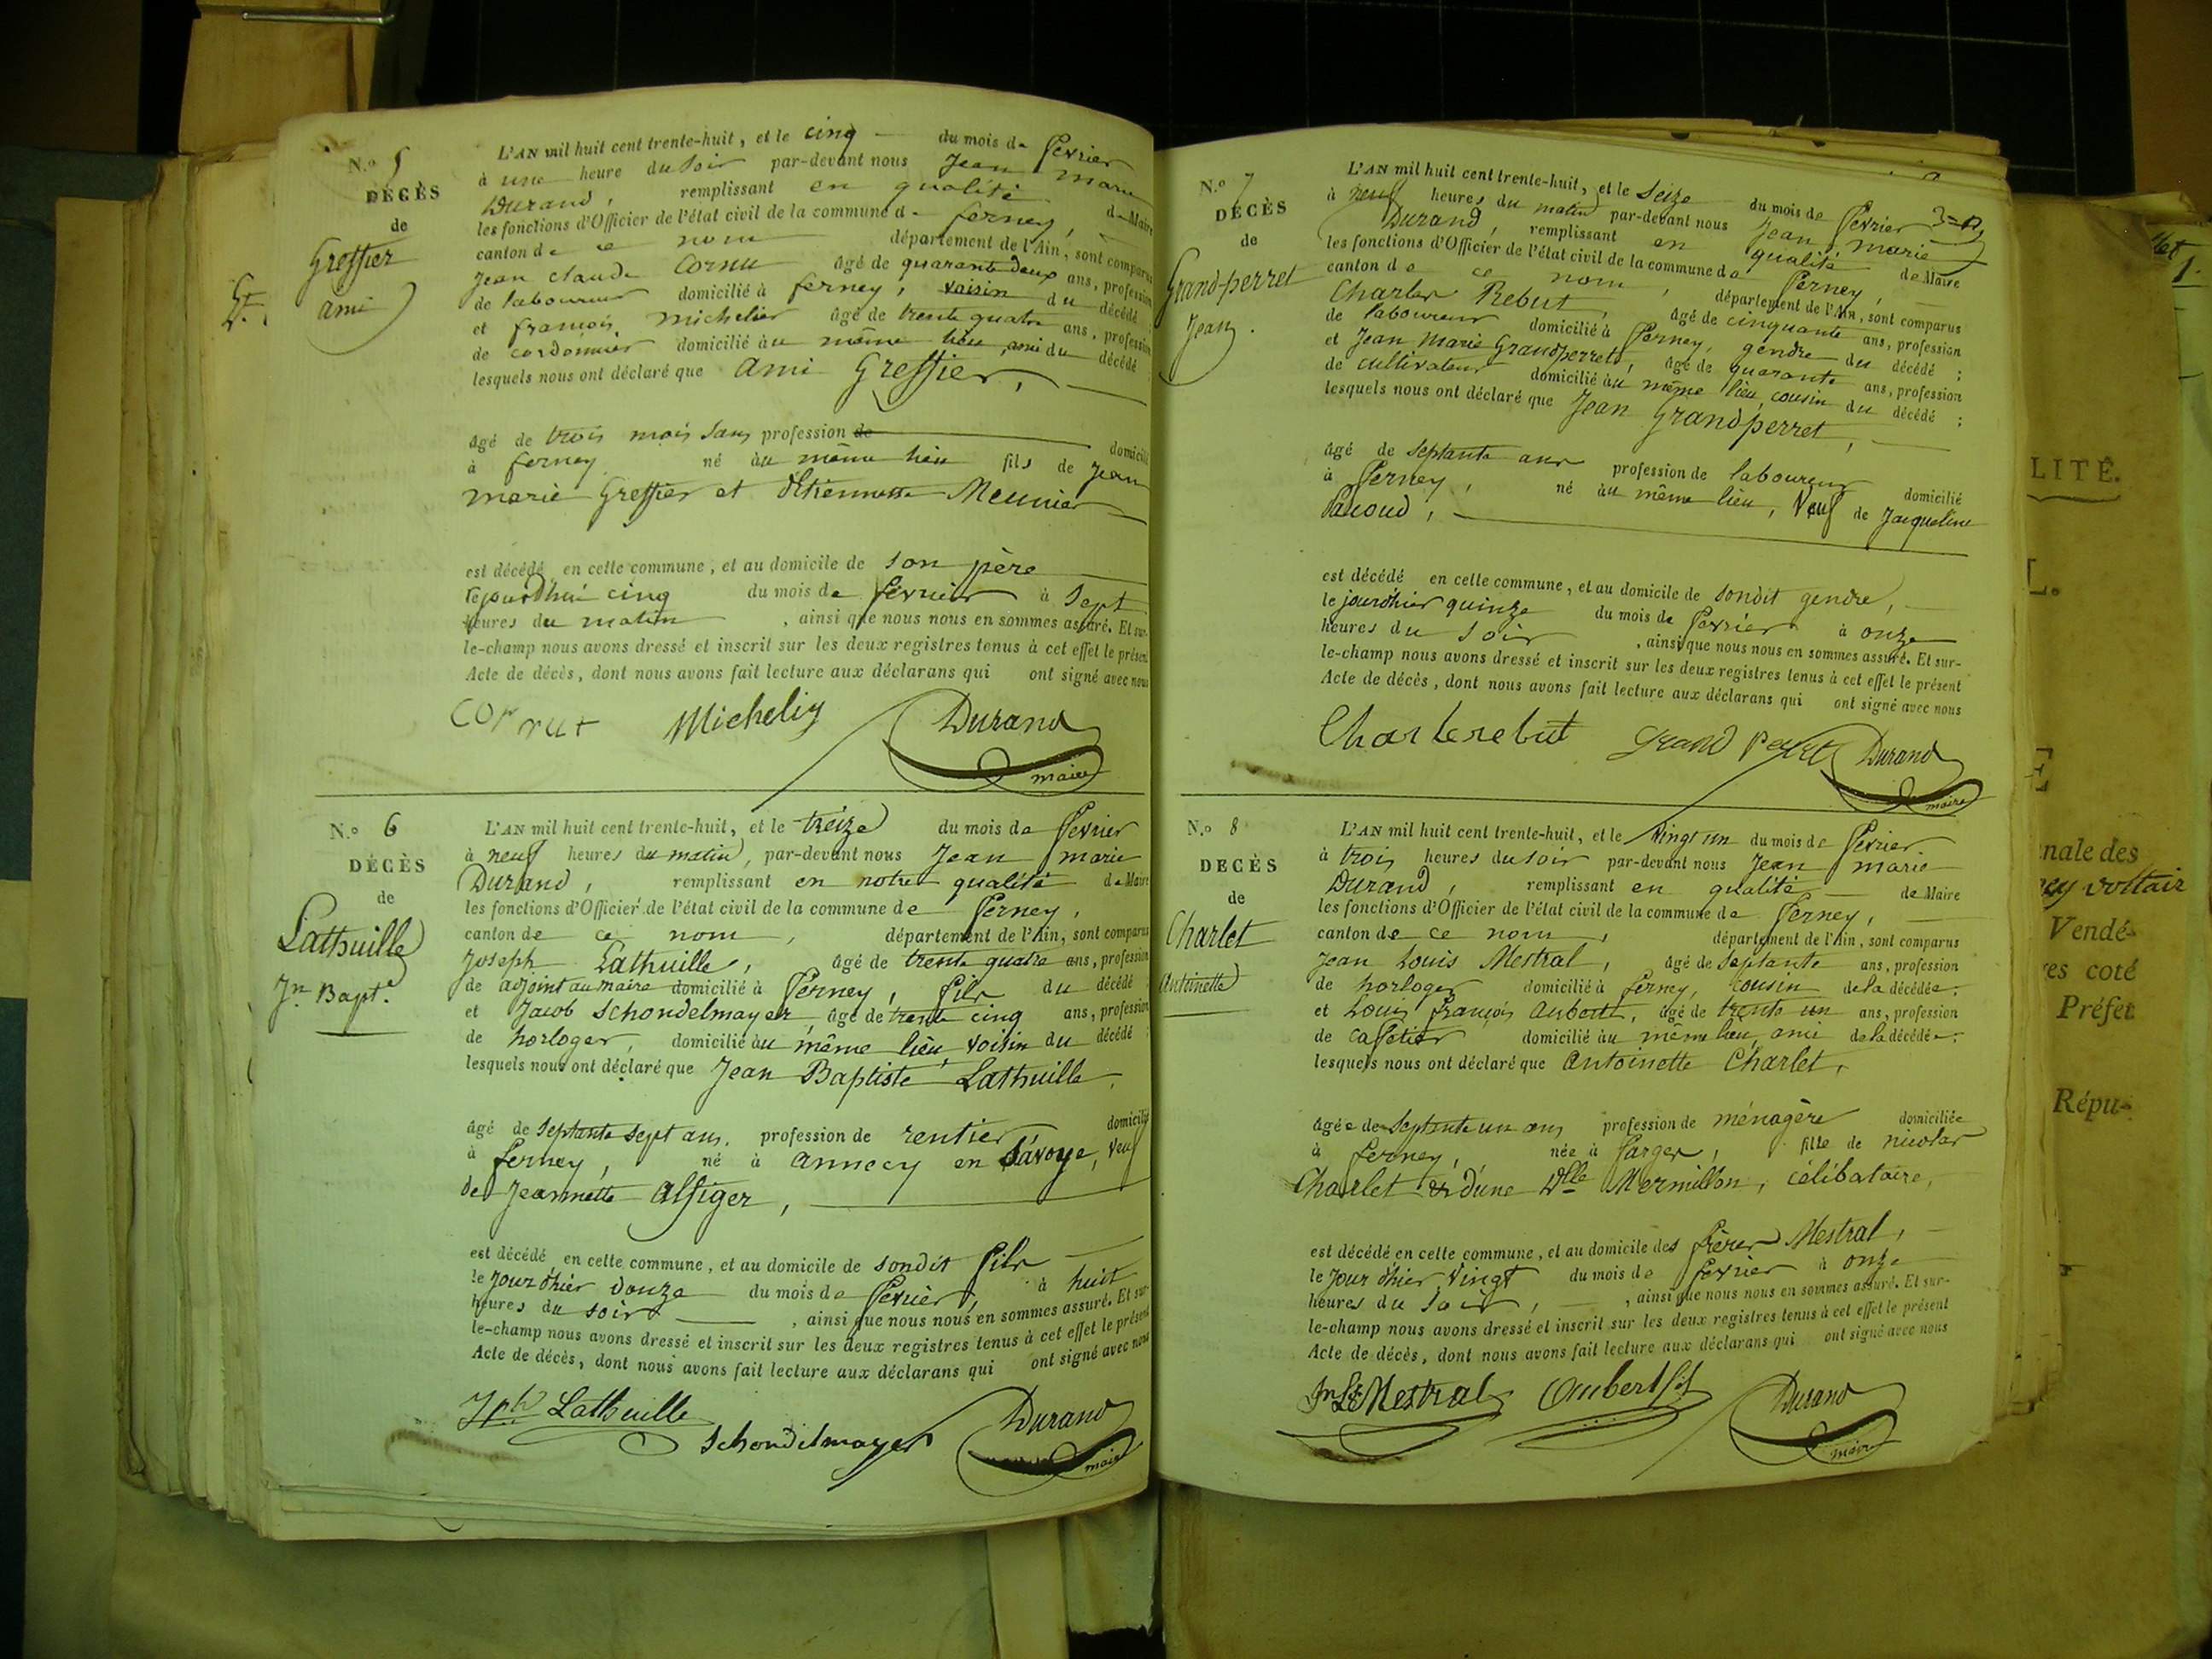 N.o 5
DÉCÈS
de
Greffier
ami
L'AN mil huit cent trente-huit, et le cinq du mois de février
à une heure du soir par-devant nous Jean marie
Durand, remplissant en qualité de Maire
les fonctions d'Officier de l'état civil de la commune de ferney,
canton de ce nom département de l'Ain, sont comparus
Jean Claude Cornu âgé de quarante deux ans, profession
de laboureur domicilié à ferney, voisin du décédé
et françois michelier âgé de trente quatre ans, profession
de cordonnier domicilié au même lieu, ami du décédé
lesquels nous ont déclaré que ami Greffier,
âgé de trois mois sans profession de domicilié
à ferney né au même lieu fils de Jean
marie Greffier et Meunier
est décédé en cette commune, et au domicile de son père
cinq du mois de février à sept
heures du matin, ainsi que nous nous en sommes assuré. Et sur-
le-champ nous avons dressé et inscrit sur les deux registres tenus à cet effet le présent
Acte de décès, dont nous avons fait lecture aux déclarans qui ont signé avec nous
Cornut Durand
maire
N.o 6
DÉCÈS
de
Lathuille
Jn Bapte.
L'AN mil huit cent trente-huit, et le treize du mois de février
à neuf heures du matin, par-devant nous Jean marie
Durand, remplissant en notre qualité de Maire
les fonctions d'Officier de l'état civil de la commune de ferney,
canton de ce nom, département de l'Ain, sont comparus
Joseph Lathuille, âgé de trente quatre ans, profession
de adjoint au maire domicilié à ferney, fils du décédé
et Jacob Schondelmayer, âgé de trente cinq ans, profession
de horloger, domicilié au même lieu, voisin du décédé
lesquels nous ont déclaré que Jean Baptiste Lathuille,
âgé de septante sept ans, profession de rentier, domicilié
à ferney, né à annecy en Savoye, veuf
de Jeannette alfiger,
est décédé en cette commune, et au domicile de sondit fils
le jour d'hier douze du mois de février, à huit
heures du soir, ainsi que nous nous en sommes assuré. Et sur-
le-champ nous avons dressé et inscrit sur les deux registres tenus à cet effet le présent
Acte de décès, dont nous avons fait lecture aux déclarans qui ont signé avec nous
Jph Lathuille
Schondelmayer Durand
maire
N.o 7
DÉCÈS
de
Grandperret
Jean.
L'AN mil huit cent trente-huit, et le seize du mois de février
à neuf heures du matin par-devant nous Jean marie
Durand, remplissant en qualité de Maire
les fonctions d'Officier de l'état civil de la commune de ferney,
canton de ce nom, département de l'Ain, sont comparus
Charles Rebut, âgé de cinquante ans, profession
de laboureur domicilié à ferney, gendre du décédé;
et Jean Marie Grandperret, âgé de quarante ans, profession
de cultivateur domicilié au même lieu, cousin du décédé;
lesquels nous ont déclaré que Jean Grandperret,
âgé de septante ans profession de laboureur domicilié
à ferney, né au même lieu, Veuf de Jacqueline
est décédé en cette commune, et au domicile de sondit gendre,
le jour d'hier quinze du mois de février à onze
heures du soir, ainsi que nous nous en sommes assuré. Et sur-
le-champ nous avons dressé et inscrit sur les deux registres tenus à cet effet le présent
Acte de décès, dont nous avons fait lecture aux déclarans qui ont signé avec nous
Charle rebut Grand perret Durand
maire
N.o 8
DÉCÈS
de
Charlet
Antoinette
L'AN mil huit cent trente-huit, et le vingt un du mois de février
à trois heures du soir par-devant nous Jean marie
Durand, remplissant en qualité de Maire
les fonctions d'Officier de l'état civil de la commune de ferney,
canton de ce nom, département de l'Ain, sont comparus
Jean Louis Mestral, âgé de septante ans, profession
de horloger domicilié à ferney, cousin de la décédée;
et Louis françois aubert, âgé de trente un ans, profession
de cafetier domicilié au même lieu, ami de la décédée;
lesquels nous ont déclaré que antoinette Charlet,
âgée de septante un ans profession de ménagère domiciliée
à ferney, née à farges, fille de nicolas
Charlet & d'une Dlle Mermillon, célibataire,
est décédé en cette commune, et au domicile des frères Mestral,
le jour d'hier vingt du mois de février à onze
heures du soir, ainsi que nous nous en sommes assuré. Et sur-
le-champ nous avons dressé et inscrit sur les deux registres tenus à cet effet le présent
Acte de décès, dont nous avons fait lecture aux déclarans qui ont signé avec nous
Jn Ls Mestral Durand
maire
LITÉ.
L.
E
nale des
ney voltair
Vendé-
res coté
Préfet
Répu-